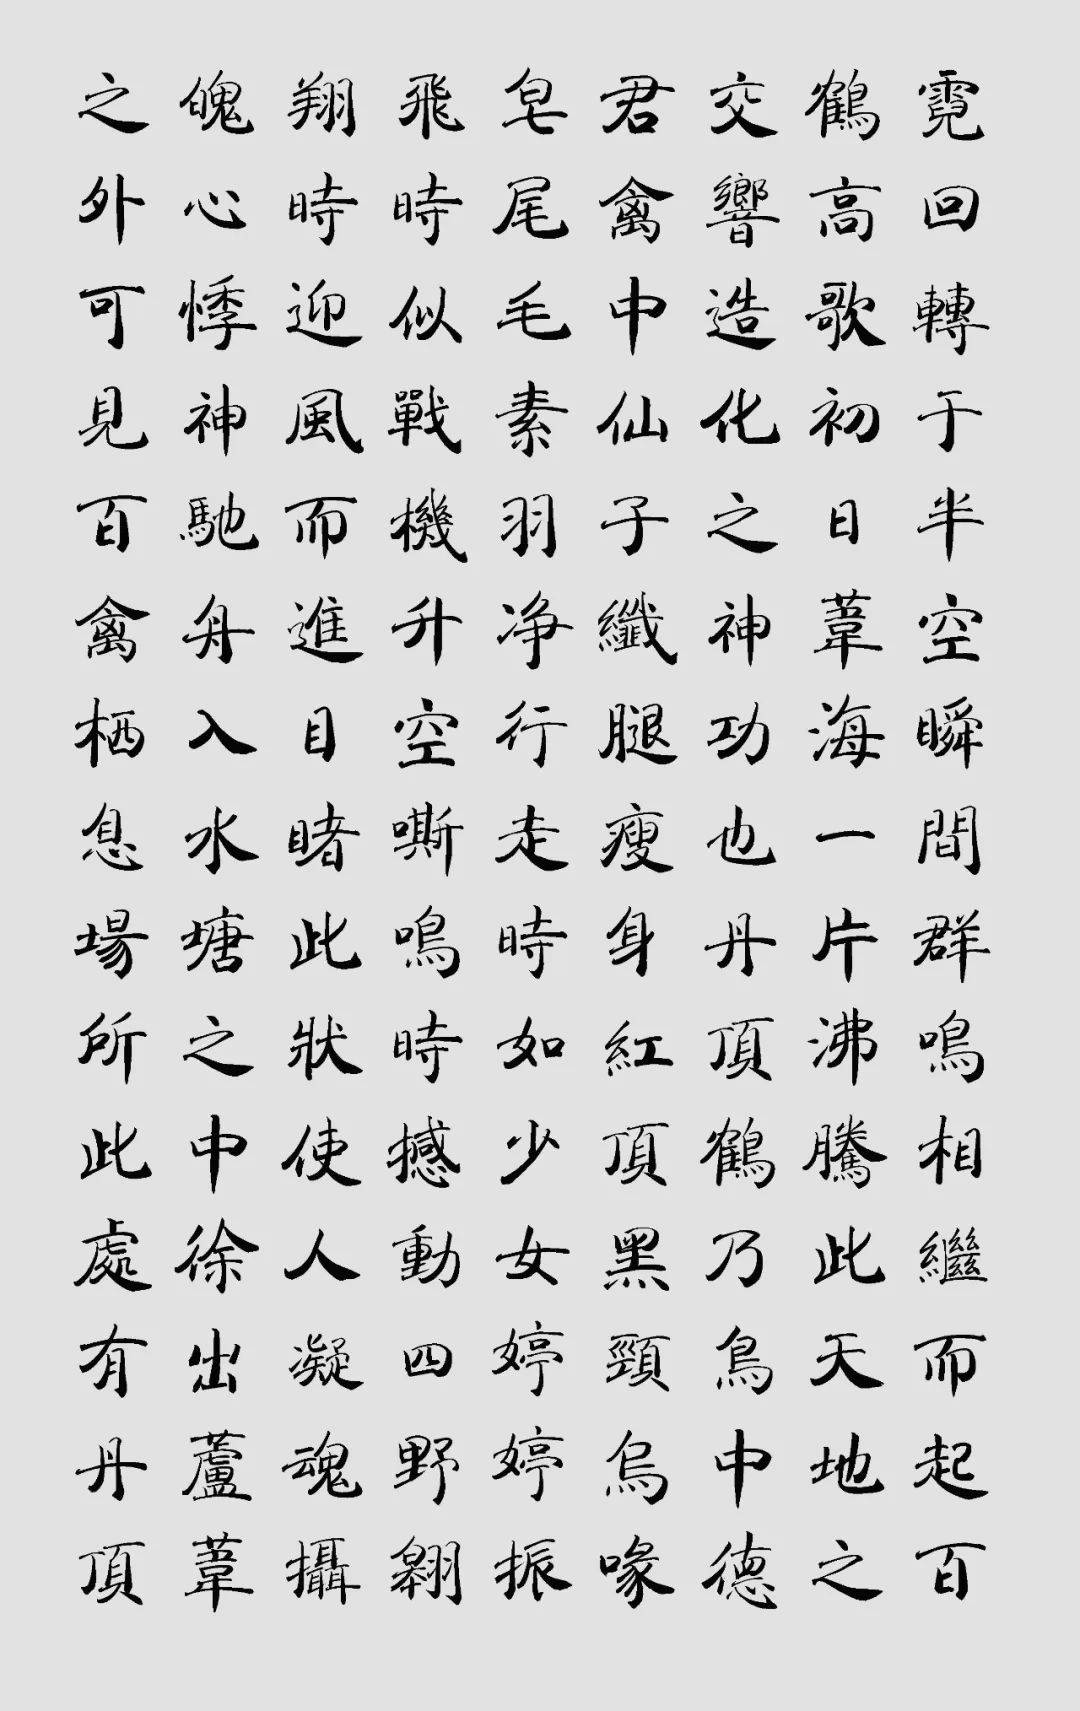 霓回轉于半空瞬間群鳴相繼而起百
鶴高歌初日葦海一片沸騰此天地之
交響造化之神功也丹頂鶴乃鳥中德
君禽中仙子纖腿瘦身紅頂黑頸烏喙
皂尾毛素羽净行走時如少女婷婷振
飛時似戰機升空嘶鳴時撼動四野翱
翔時迎風而進目睹此狀使人凝魂攝
魄心悸神馳舟入水塘之中徐出蘆葦
之外可見百禽栖息場所此處有丹頂